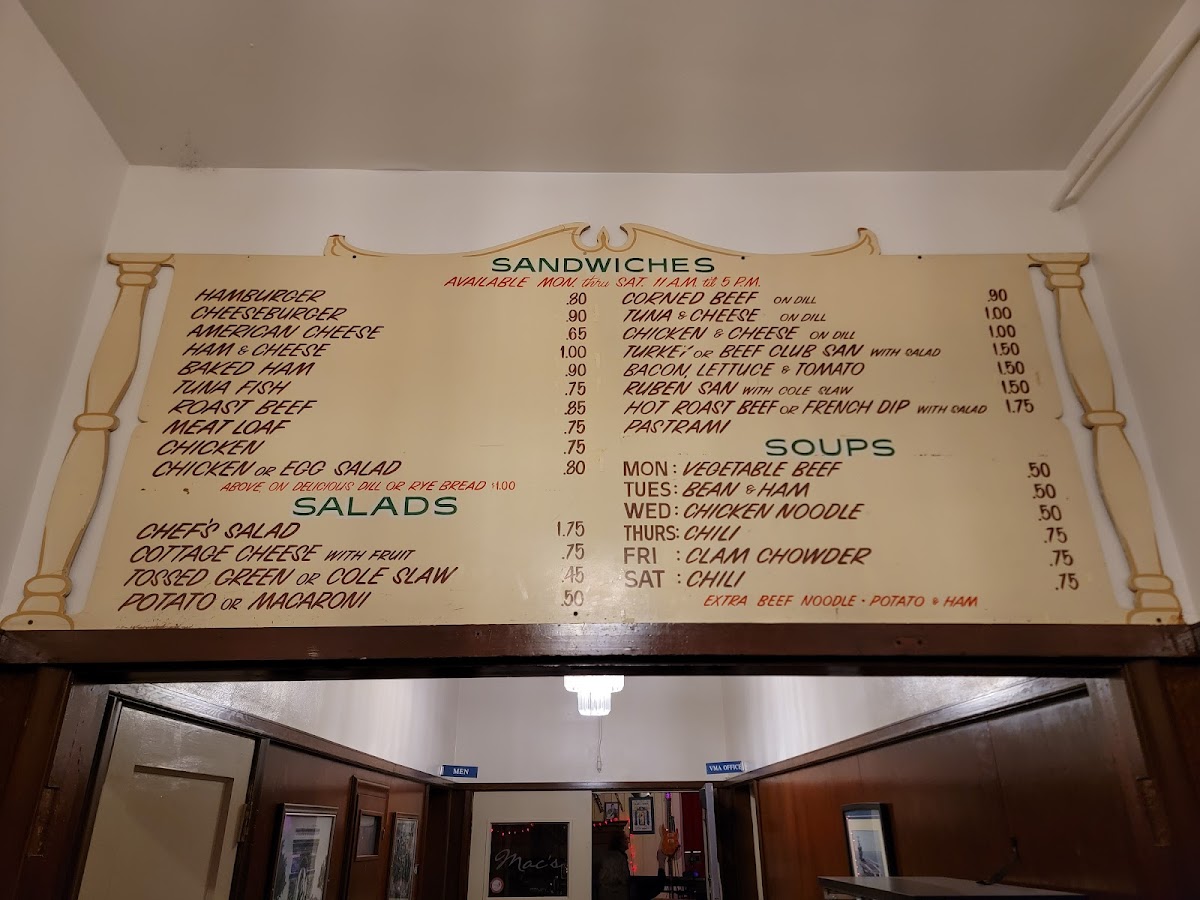 SANDWICHES
AVAILABLE MON. thru SAT. 11 A.M. til 5 P.M.
HAMBURGER .80
CHEESEBURGER .90
AMERICAN CHEESE .65
HAM & CHEESE 1.00
BAKED HAM .90
TUNA FISH .75
ROAST BEEF .85
MEAT LOAF .75
CHICKEN .75
CHICKEN OR EGG SALAD .80
ABOVE ON DELICIOUS DILL OR RYE BREAD $1.00
CORNED BEEF ON DILL .90
TUNA & CHEESE ON DILL 1.00
CHICKEN & CHEESE ON DILL 1.00
TURKEY OR BEEF CLUB SAN WITH SALAD 1.50
BACON, LETTUCE & TOMATO 1.50
RUBEN SAN WITH COLE SLAW 1.50
HOT ROAST BEEF OR FRENCH DIP WITH SALAD 1.75
PASTRAMI
SALADS
CHEF'S SALAD 1.75
COTTAGE CHEESE WITH FRUIT .75
TOSSED GREEN OR COLE SLAW .45
POTATO OR MACARONI .50
SOUPS
MON: VEGETABLE BEEF .50
TUES: BEAN & HAM .50
WED: CHICKEN NOODLE .50
THURS: CHILI .75
FRI : CLAM CHOWDER .75
SAT : CHILI .75
EXTRA BEEF NOODLE • POTATO & HAM
MEN
VMA OFFICE
Mac's